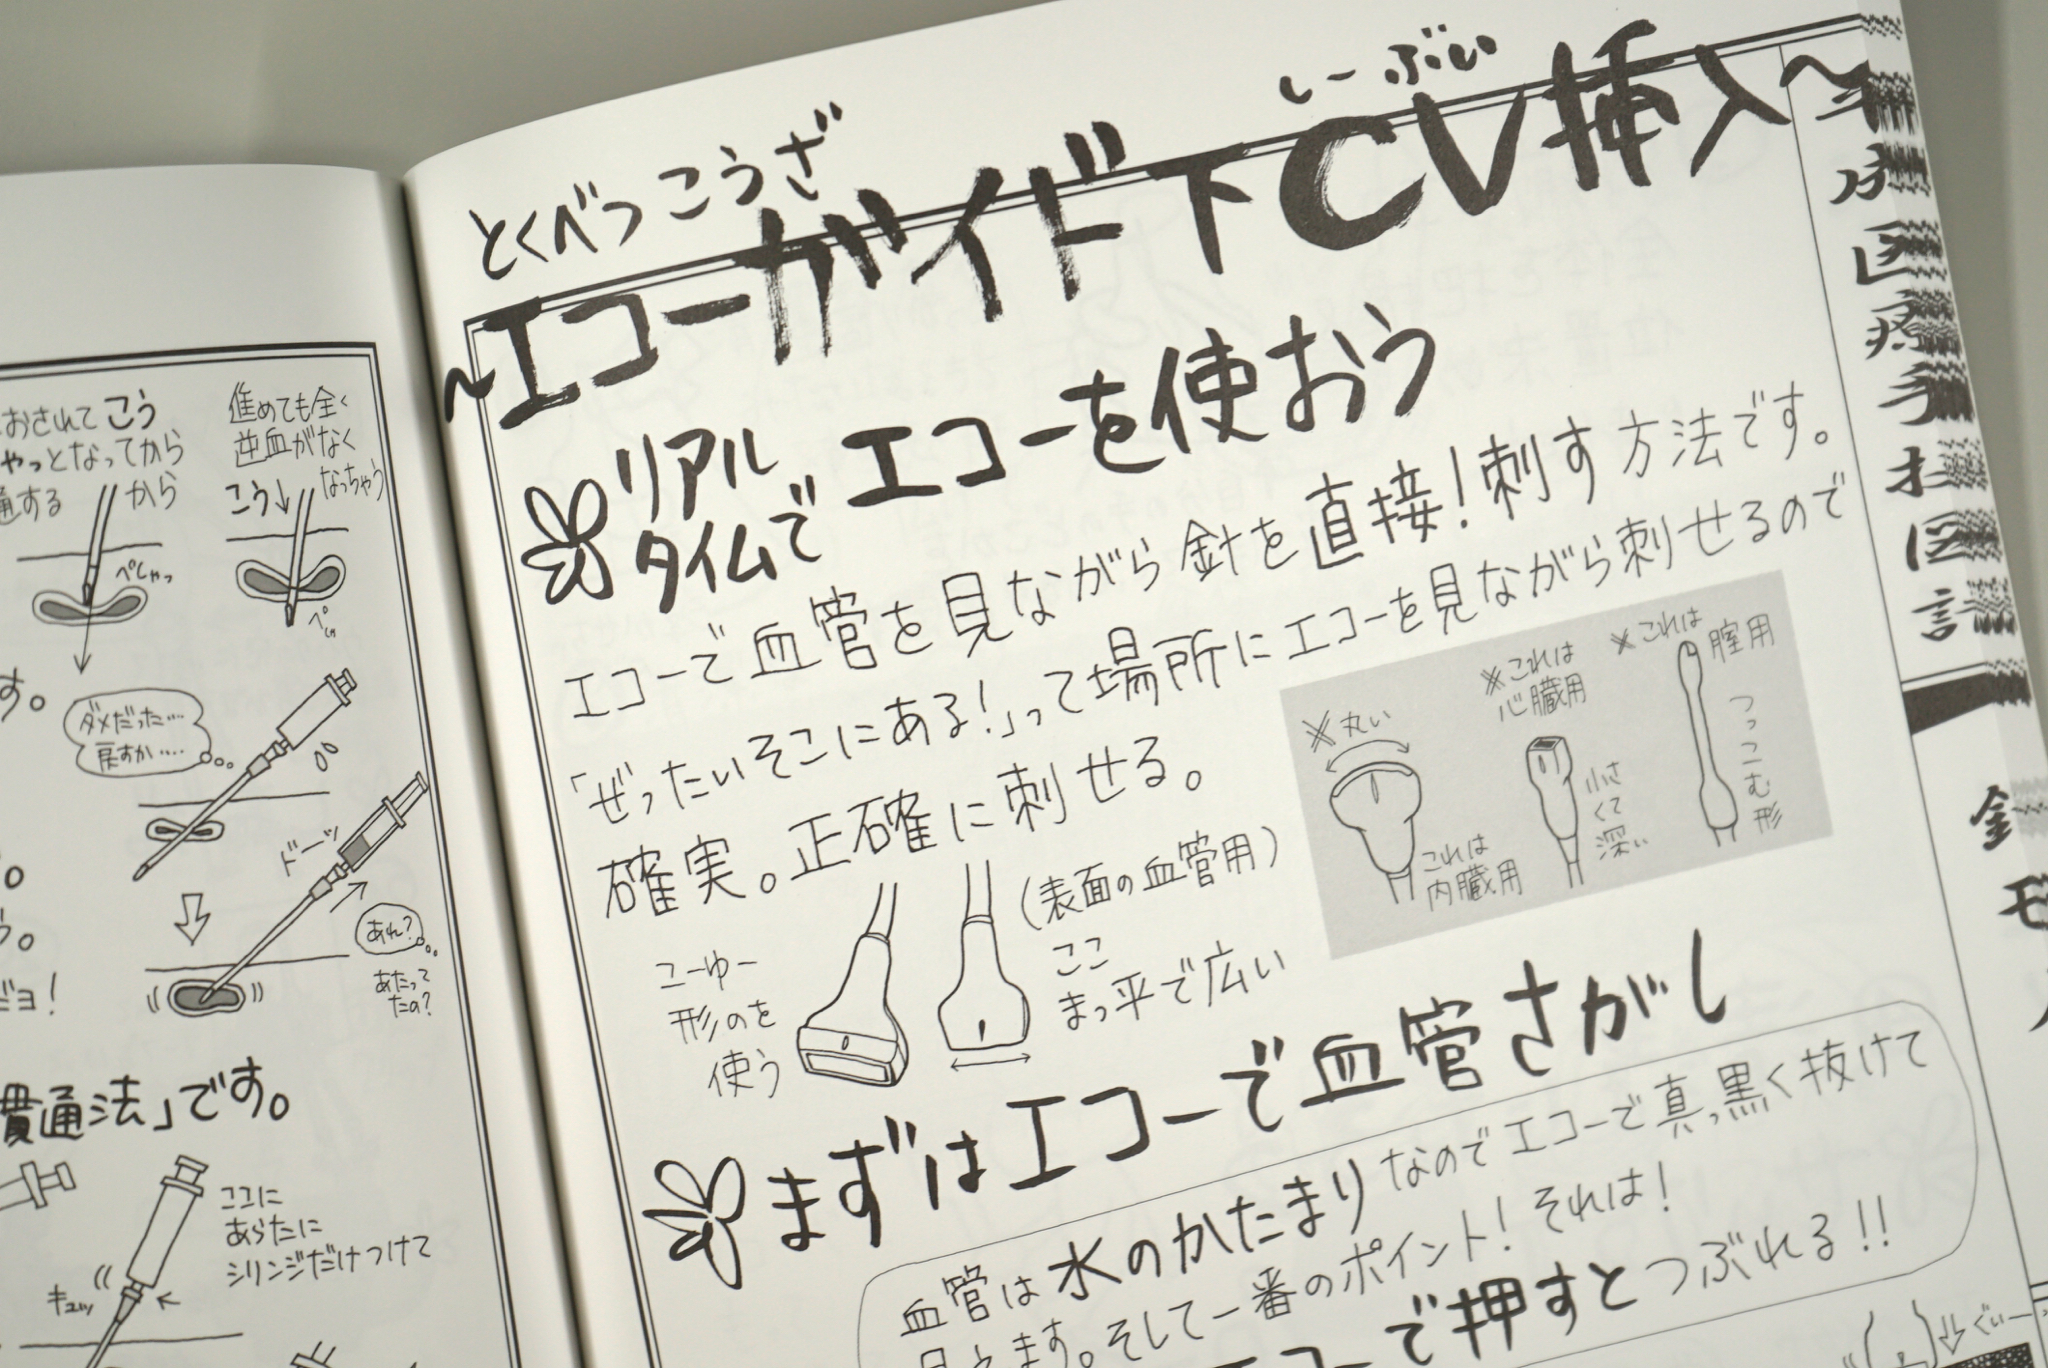 おされて こう
ゃっとなってから
通する から
進めても全く
逆血がなく
なっちゃう
こう↓
ぺしゃっ
す。
ダメだった……
戻すか……
ドーッ
あれ?
あたって
たの?
だヨ!
貫通法」です。
ここに
あらたに
シリンジだけつけて
キュッ
とくべつこうざ
しーぶい
〜エコーガイド下CV挿入〜
リアル
タイムで エコーを使おう
エコーで血管を見ながら針を直接!刺す方法です。
「ぜったいそこにある!」って場所にエコーを見ながら刺せるので
確実。正確に刺せる。
こーゆー
形のを
使う
(表面の血管用)
ここ
まっ平で広い
※丸い
これは
内臓用
※これは
心臓用
小さ
くて
深い
※これは
腟用
つっこむ形
まずはエコーで血管さがし
血管は水のかたまりなのでエコーで真っ黒く抜けて
見えます。そして一番のポイント!それは!
エコーで押すとつぶれる!!
ぐいー